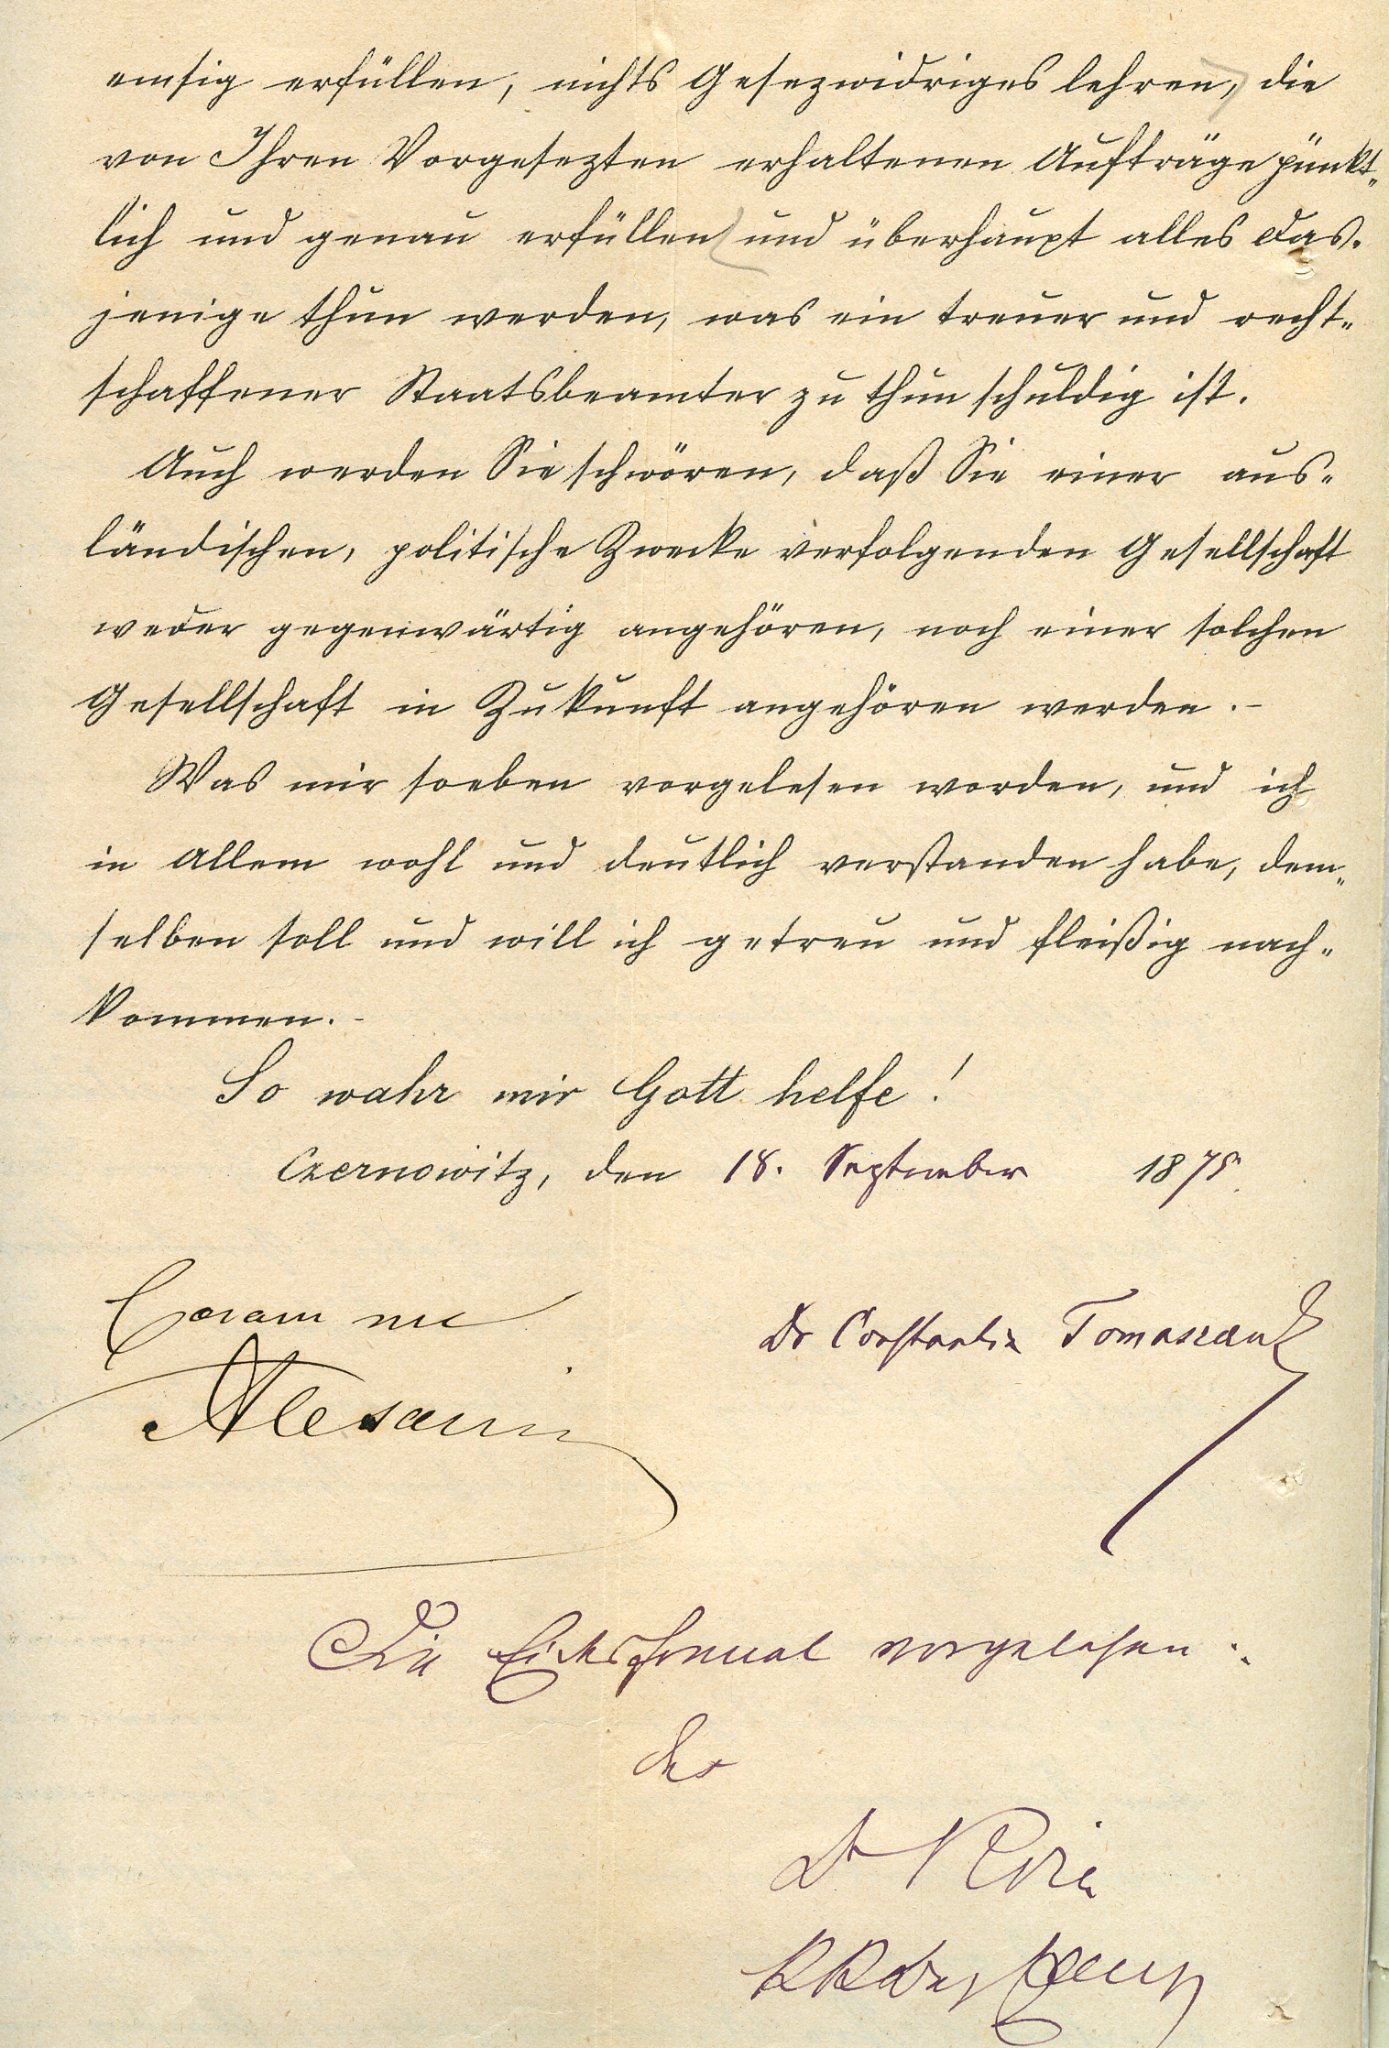 emsig erfüllen, nichts Gesezwidriges lehren, die
von Ihren Vorgesezten erhaltenen Aufträge pünkt-
lich und genau erfüllen und überhaupt alles das-
jenige thun werden, was ein treuer und recht-
schaffener Staatsbeamter zu thun schuldig ist.
Auch werden Sie schwören, daß Sie einer aus-
ländischen, politische Zwecke verfolgenden Gesellschaft
weder gegenwärtig angehören, noch einer solchen
Gesellschaft in Zukunft angehören werden. -
Was mir soeben vorgelesen worden, und ich
in Allem wohl und deutlich verstanden habe, dem-
selben soll und will ich getreu und fleißig nach-
kommen. -
So wahr mir Gott helfe!
Czernowitz, den 18. September 1875.
Coram me
Alesani
Dr Constantin Tomaszczuk
Die Eidesformel vorgelesen:
Dr